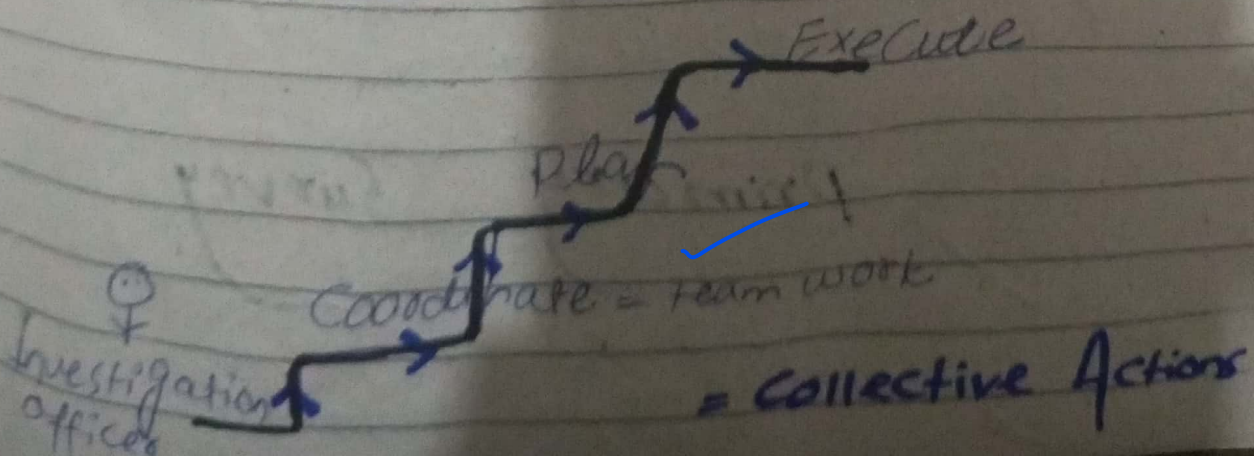 Execute
Plan
Coordinate = team work
Investigation
Officer
= Collective Actions